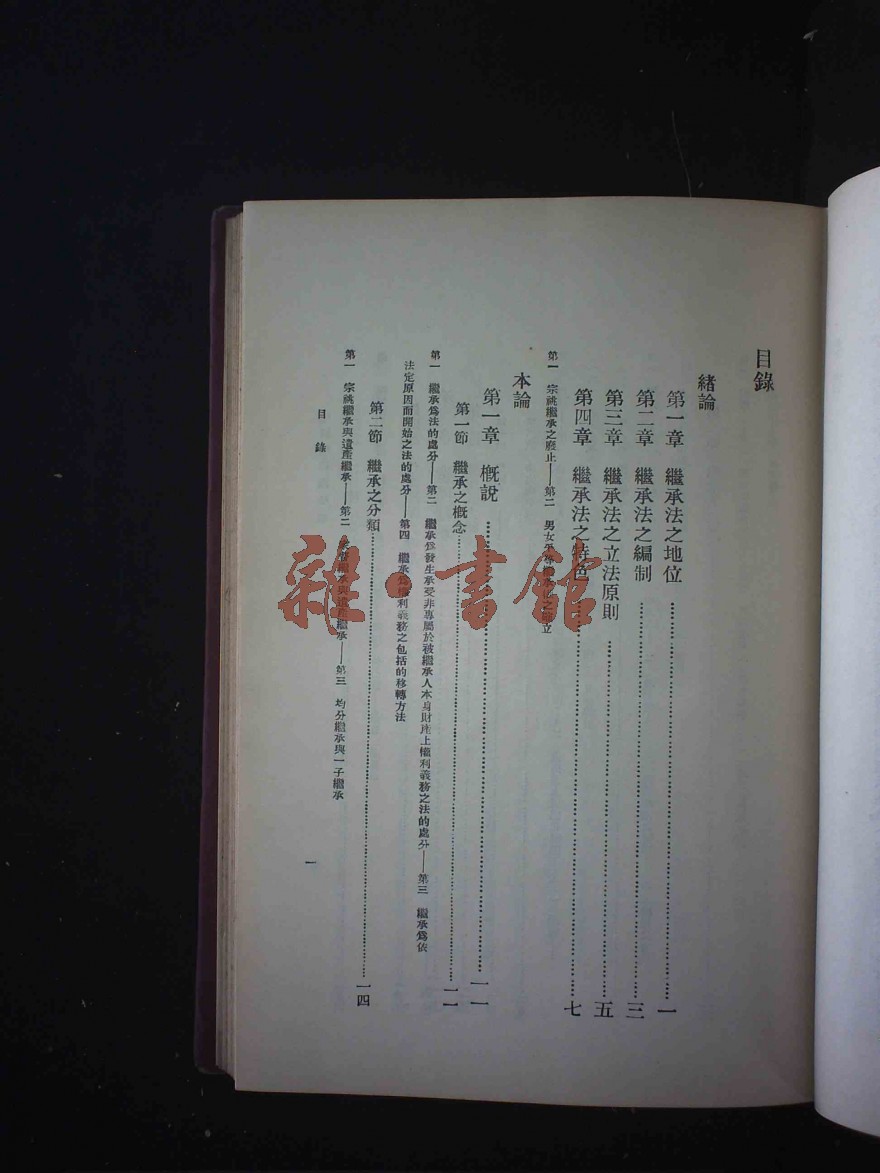 目錄
緒論
第一章　繼承法之地位……一
第二章　繼承法之編制……三
第三章　繼承法之立法原則……五
第四章　繼承法之特色……七
第一　宗祧繼承之廢止——第二　男女平等繼承之立
本論
第一章　概說……一一
第一節　繼承之概念……一一
第一　繼承爲法的處分——第二　繼承爲發生承受非專屬於被繼承人本身財產上權利義務之法的處分——第三　繼承爲依
法定原因而開始之法的處分——第四　繼承爲權利義務之包括的移轉方法
第二節　繼承之分類……一四
第一　宗祧繼承與遺產繼承——第二　繼承與遺產繼承——第三　均分繼承與一子繼承
目錄
一
雜·書館